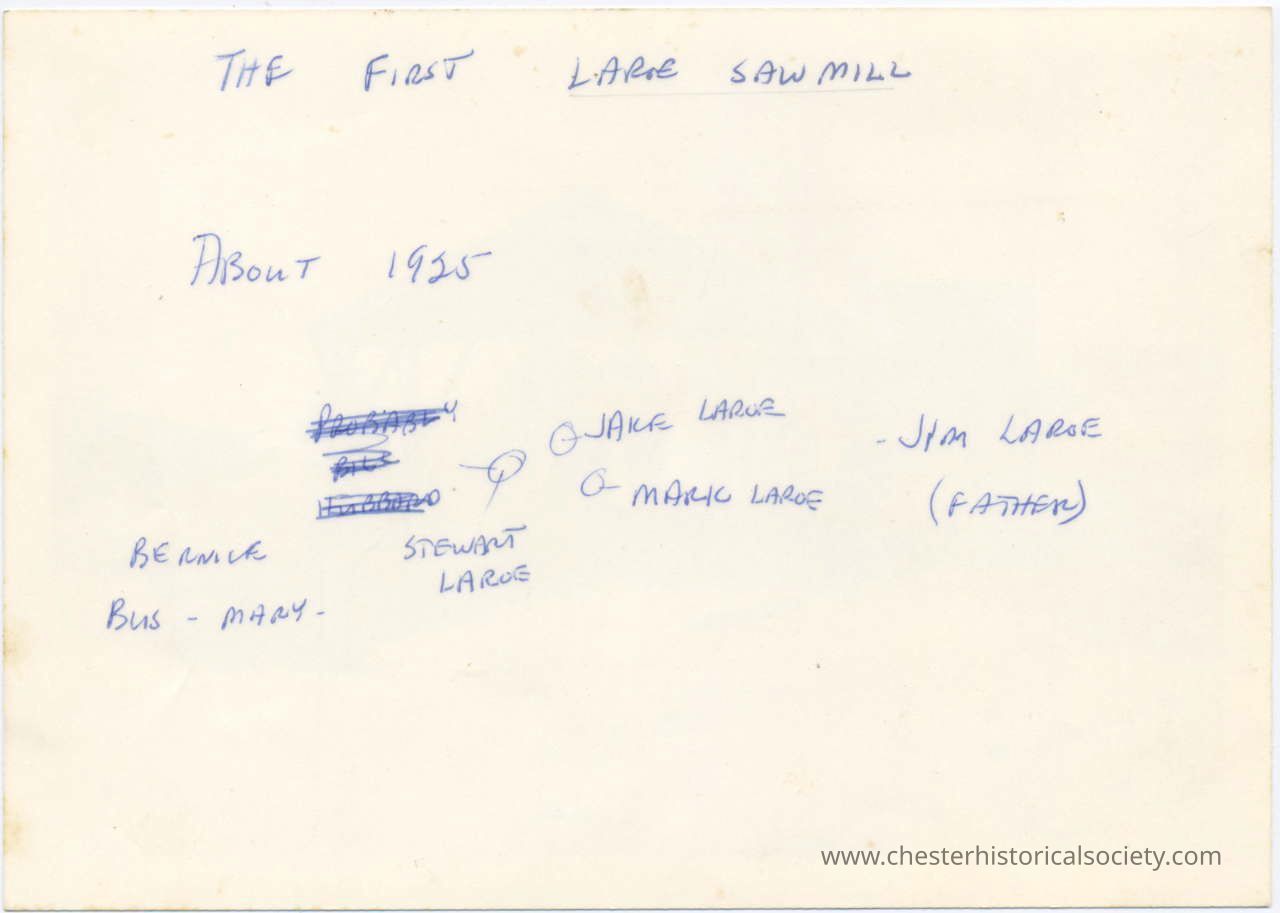 THE FIRST LAROE SAWMILL
ABOUT 1925
PROBABLY
BILL
HUBBARD
JAKE LAROE
MARK LAROE
- JIM LAROE
(FATHER)
STEWART
LAROE
BERNICE
BUS - MARY -
www.chesterhistoricalsociety.com